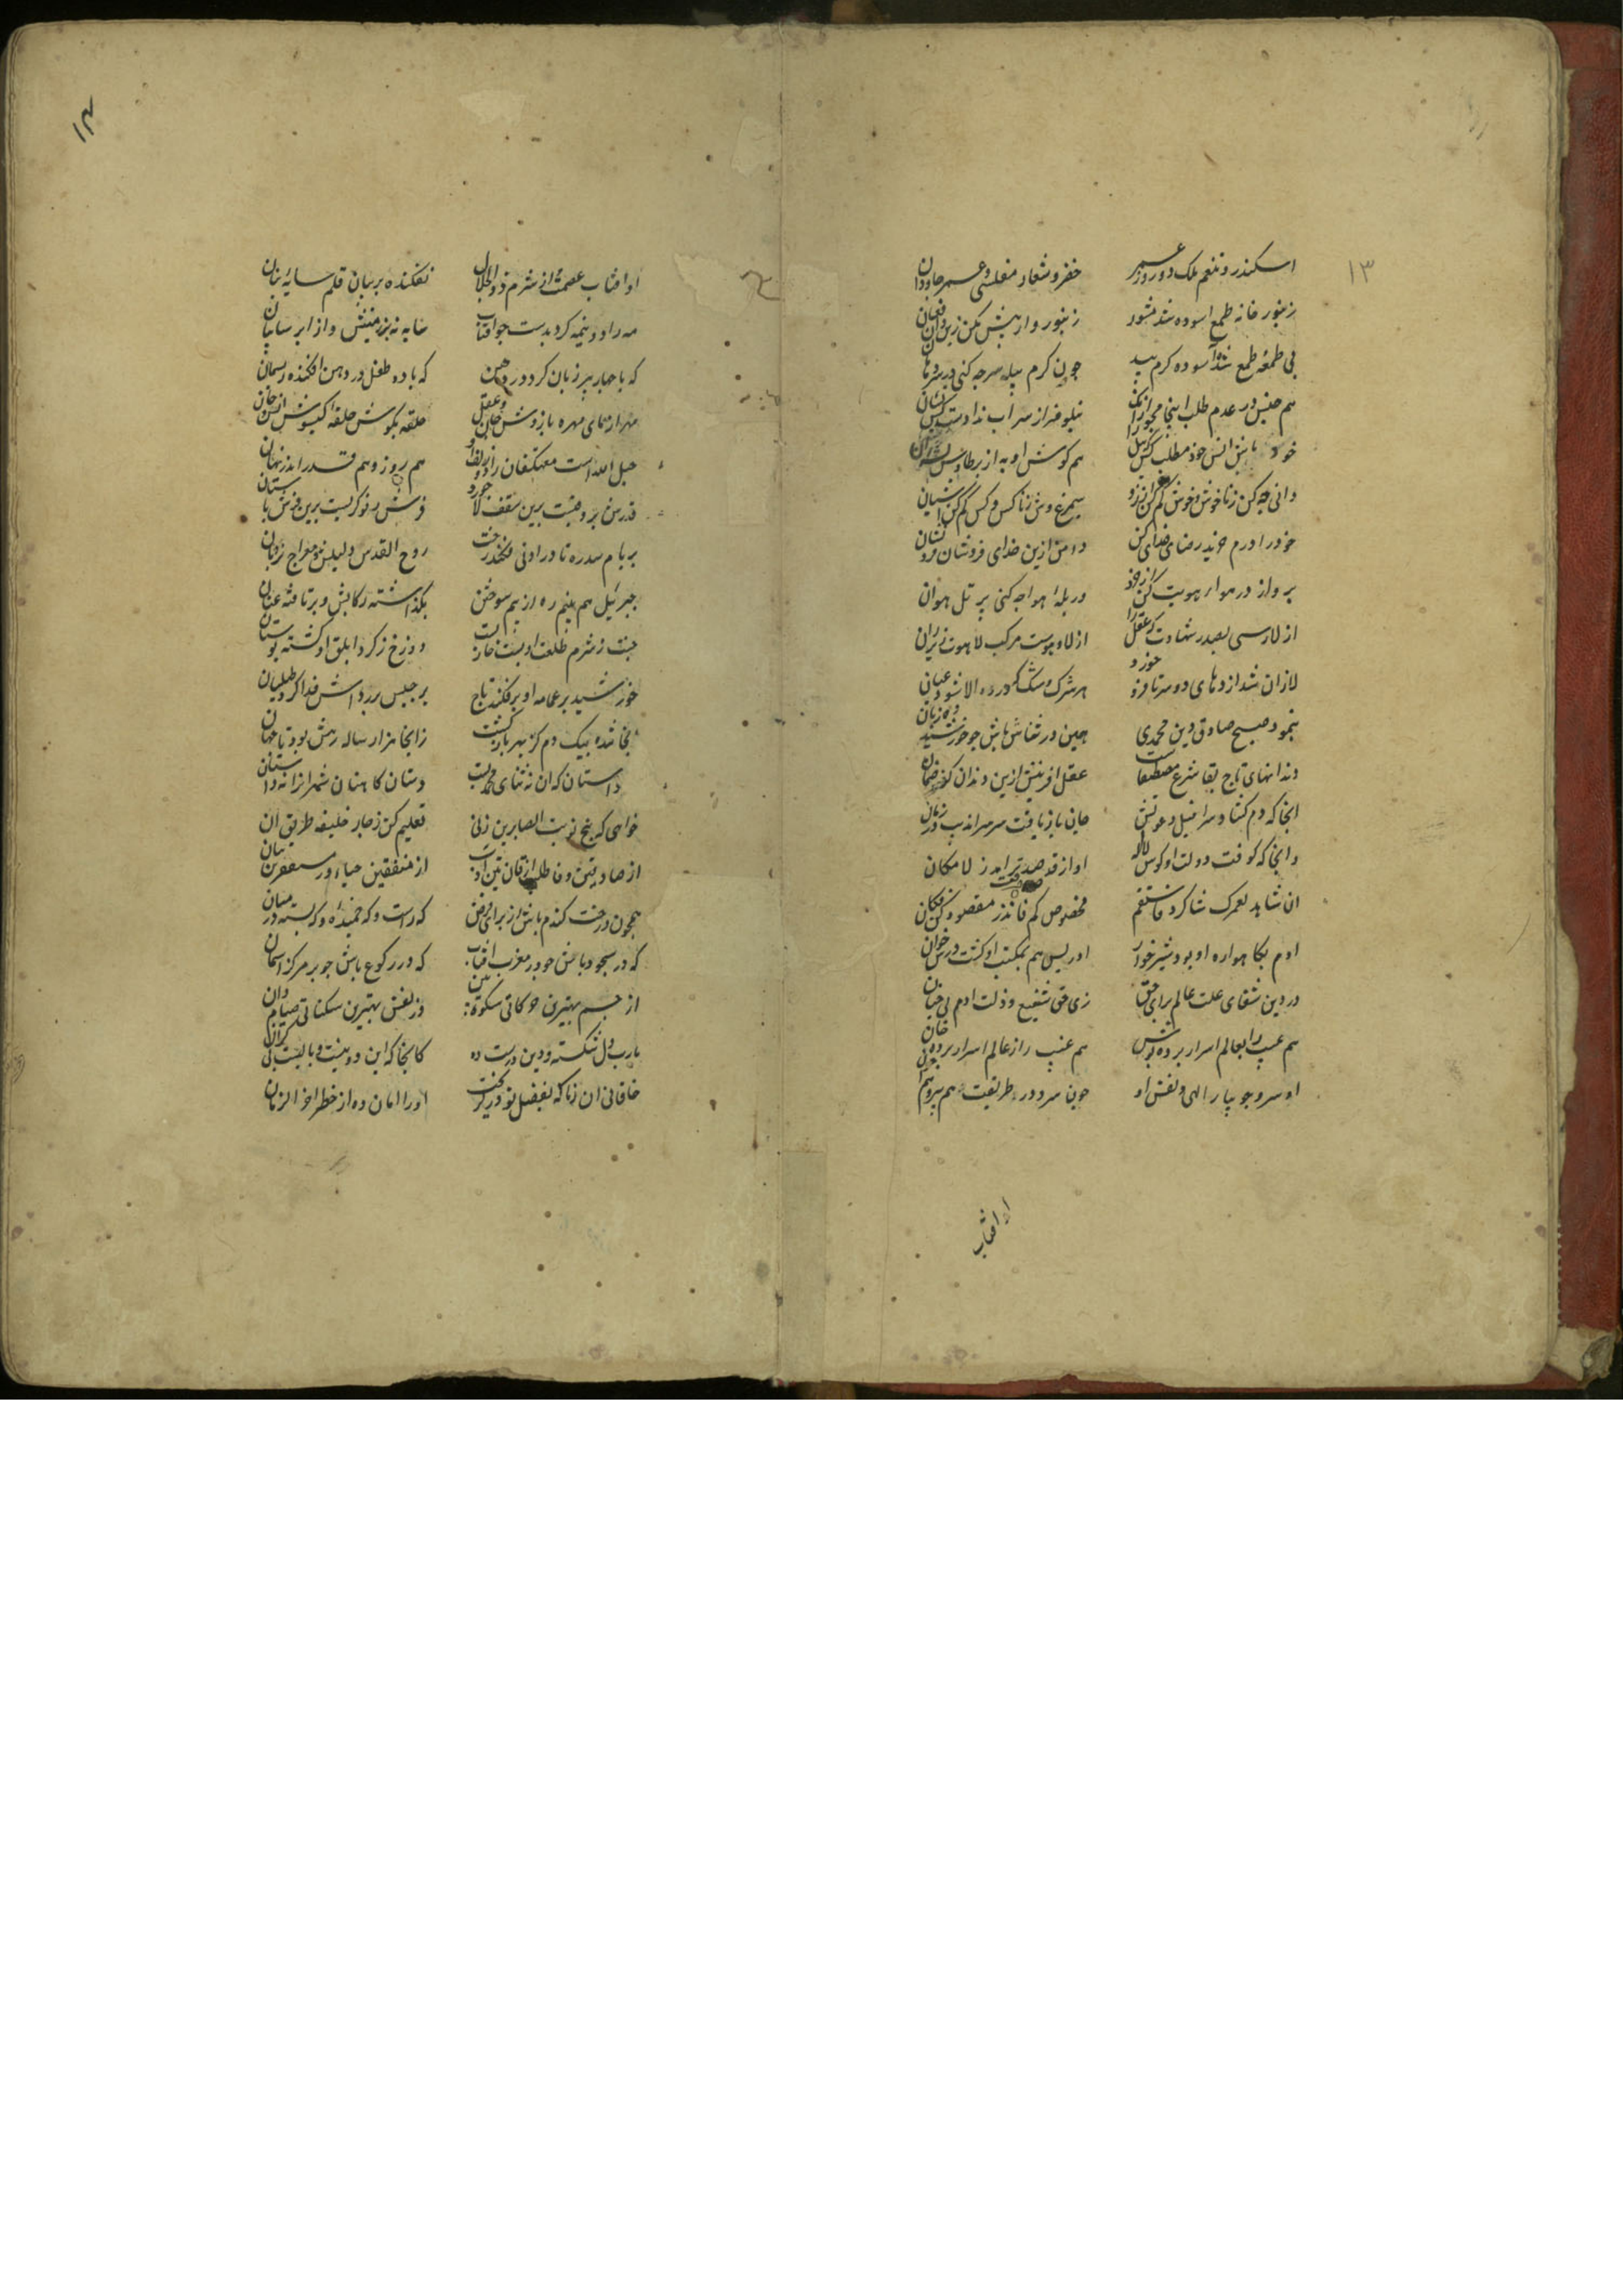 ۱۳
اسکندر و تنعم ملک دو روزه عمر خضر و شعار مفلسی و عمر جاودان
زنبور خانه طمع اسوده شد مشور زنبور وار بیش مکن زین و ان فغان
بی طعمه طمع شو آسوده کرم پیله
هم جنس در عدم طلب اینجا مجو ازانک نیلوفر از سراب نداده است کس نشان
خود باش انس خود مطلب کس
دانی چه کن ز ناخوش و خوش کم کن ارزو سیمرغ وش ز ناکس و کس کم کن اشیان
خود را درم خرید رضای خدای کن دامن ازین خدای فروشان فرو نشان
پرواز در هوای هویت کن از خرد در پله هوا چه کنی بر تل هوان
از لا رسی بصدر شهادت که عقل را از لا و هوست مرکب لاهوت زیر ران
لا زان شد اژدهای دو سر تا فرو خورد هر شرک و شک که در ره الا شود عیان
بنمود صبح صادق دین محمدی هین در ثناش باش چو خورشید ده زبان
دندانهای تاج بقا شرع مصطفاست عقل افرینش از بن دندان کند ضمان
انجا که دم کشاد سرافیل دعوتش جان باز یافت سر سراندیب در زمان
وانجا که کوفت دولت او کوس لااله اواز قد صدقت برامد ز لامکان
ان شاهد لعمرک شاکرد فاستقم مخصوص قم فانذر مقصود کن فکان
ادم بکاهواره او بود شیرخوار ادریس هم بمکتب او کشت درس خوان
در دین شفای علت عالم برای حق زی حق شفیع و ذلت ادم
هم عیسی را بعالم اسرار برده هم غیب را ز عالم اسرار
او سرو جویبار الهی و نفس او چون سرو در طریقت هم پیر و هم جوان
او افتاب
۱۴
او افتاب عصمت و از شرم ذوالجلال نفکنده بر بیان قلم سایه بنان
مه را دو نیمه کرد بدست چو افتاب سایه نه بر زمینش و از ابر سایبان
که با چهار پیر زبان کرد در دهن که با ده طفل در دهن افکنده ریسمان
مهر ازمای مهره بازوش جان و عقل حلقه بکوش حلقه کیسوش انس و جان
حبل الله است معتکفان را دو زلف او هم روز و هم قدر اندر نهان
قدرش بروفت برین سقف لاجورد
بر بام سدره تا در ادنی فکند رخت روح القدس دلیلش و معراج نردبان
جبریل هم بنیم ره از بیم سوختن بگذاشته رکابش و برتافته عنان
جنت ز شرم طلعت او کشت خارزار دوزخ ز کرد ابلق او کشته بوستان
خورشید بر عمامه او بر فکنده تاج برجیس بر رداش فدا کرد طیلسان
انجا شده بیک دم کز بهر بازگشت زانجا هزار ساله رهش بود تا جهان
داستان که ان نه ثنای محمدیست دستان کاهنان شمر انرا نه داستان
خواهی که پنج نوبت الصابرین زنی تعلیم کن ز چار خلیفه طریق ان
از صادقین وفا طلب از قانتین ادب از منفقین حیا و ز مستغفرین بیان
همچون درخت کندم باش از برای فرض که راست و که خمیده و که بسته در میان
که در سجود باش چو در مغرب افتاب که در رکوع باش چو بر مرکز اسمان
از جسم بهترین حرکاتی سکوت بین وز نفس بهترین سکناتی صیام دان
یارب دل شکسته و دین درست ده کانجا که این دو نیست وبالیست بی کران
خاقانی ان زمان که بفضل تو در گریخت او را امان ده از خطر اخرالزمان